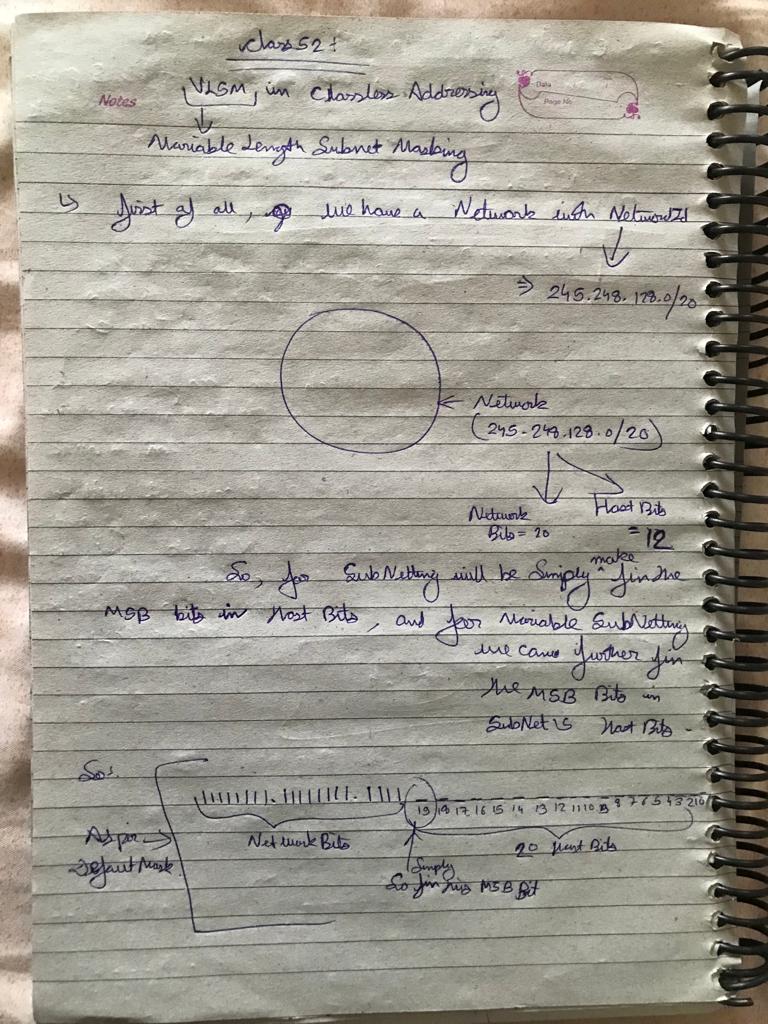 Class 52:
Notes
VLSM, in Classless Addressing
Date
Page No.
Variable Length Subnet Masking
↳ first of all, we have a Network with NetworkId
⇒ 245.248.128.0/20
← Network
(245.248.128.0/20)
Network Bits = 20
Host Bits = 12
So, for SubNetting will be Simply make fix the
MSB bits in Host Bits, and for Variable SubNetting
we can further fix
the MSB Bits in
SubNet's Host Bits.
So:
11111111.11111111.1111
19 18 17 16 15 14 13 12 11 10 9 8 7 6 5 4 3 2 1 0
As per Default Mask →
Network Bits
20 Host Bits
Simply
So fix this MSB Bit